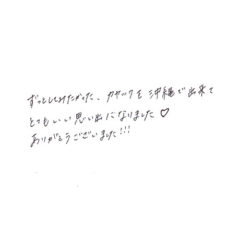 ずっとしてみたかった、カヤックを沖縄で出来て
とてもいい思い出になりました♡
ありがとうございました!!!